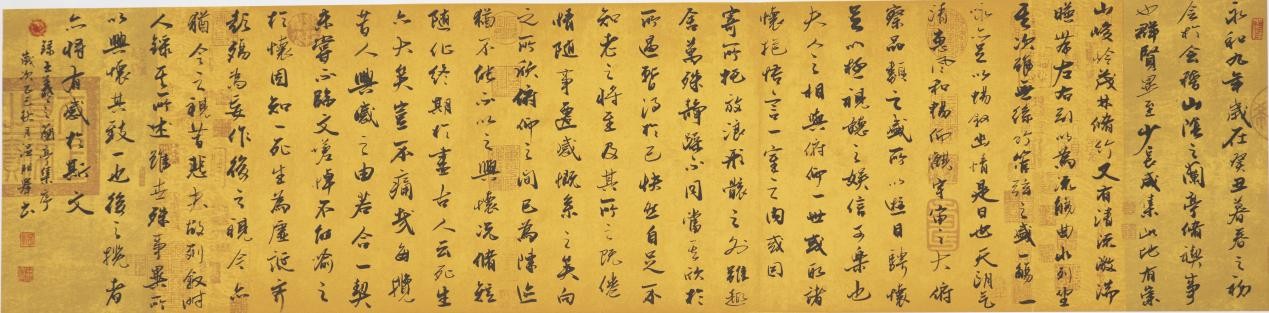 永和九年歲在癸丑暮春之初
會於會稽山陰之蘭亭脩禊事
也群賢畢至少長咸集此地有崇
山峻領茂林脩竹又有清流激湍
暎帶左右引以為流觴曲水列坐
其次雖無絲竹管弦之盛一觴一
詠亦足以暢敘幽情是日也天朗氣
清惠風和暢仰觀宇宙之大俯
察品類之盛所以遊目騁懷
足以極視聽之娛信可樂也
夫人之相與俯仰一世或取諸
懷抱悟言一室之內或因
寄所托放浪形骸之外雖趣
舍萬殊靜躁不同當其欣於
所遇暫得於己快然自足不
知老之將至及其所之既倦
情隨事遷感慨係之矣向
之所欣俯仰之間已為陳迹
猶不能不以之興懷況脩短
隨化終期於盡古人云死生
亦大矣豈不痛哉每攬
昔人興感之由若合一契
未嘗不臨文嗟悼不能喻之
於懷固知一死生為虛誕齊
彭殤為妄作後之視今亦
猶今之視昔悲夫故列敘時
人錄其所述雖世殊事異所
以興懷其致一也後之攬者
亦將有感於斯文
錄王羲之蘭亭集序
歲次乙巳秋月書